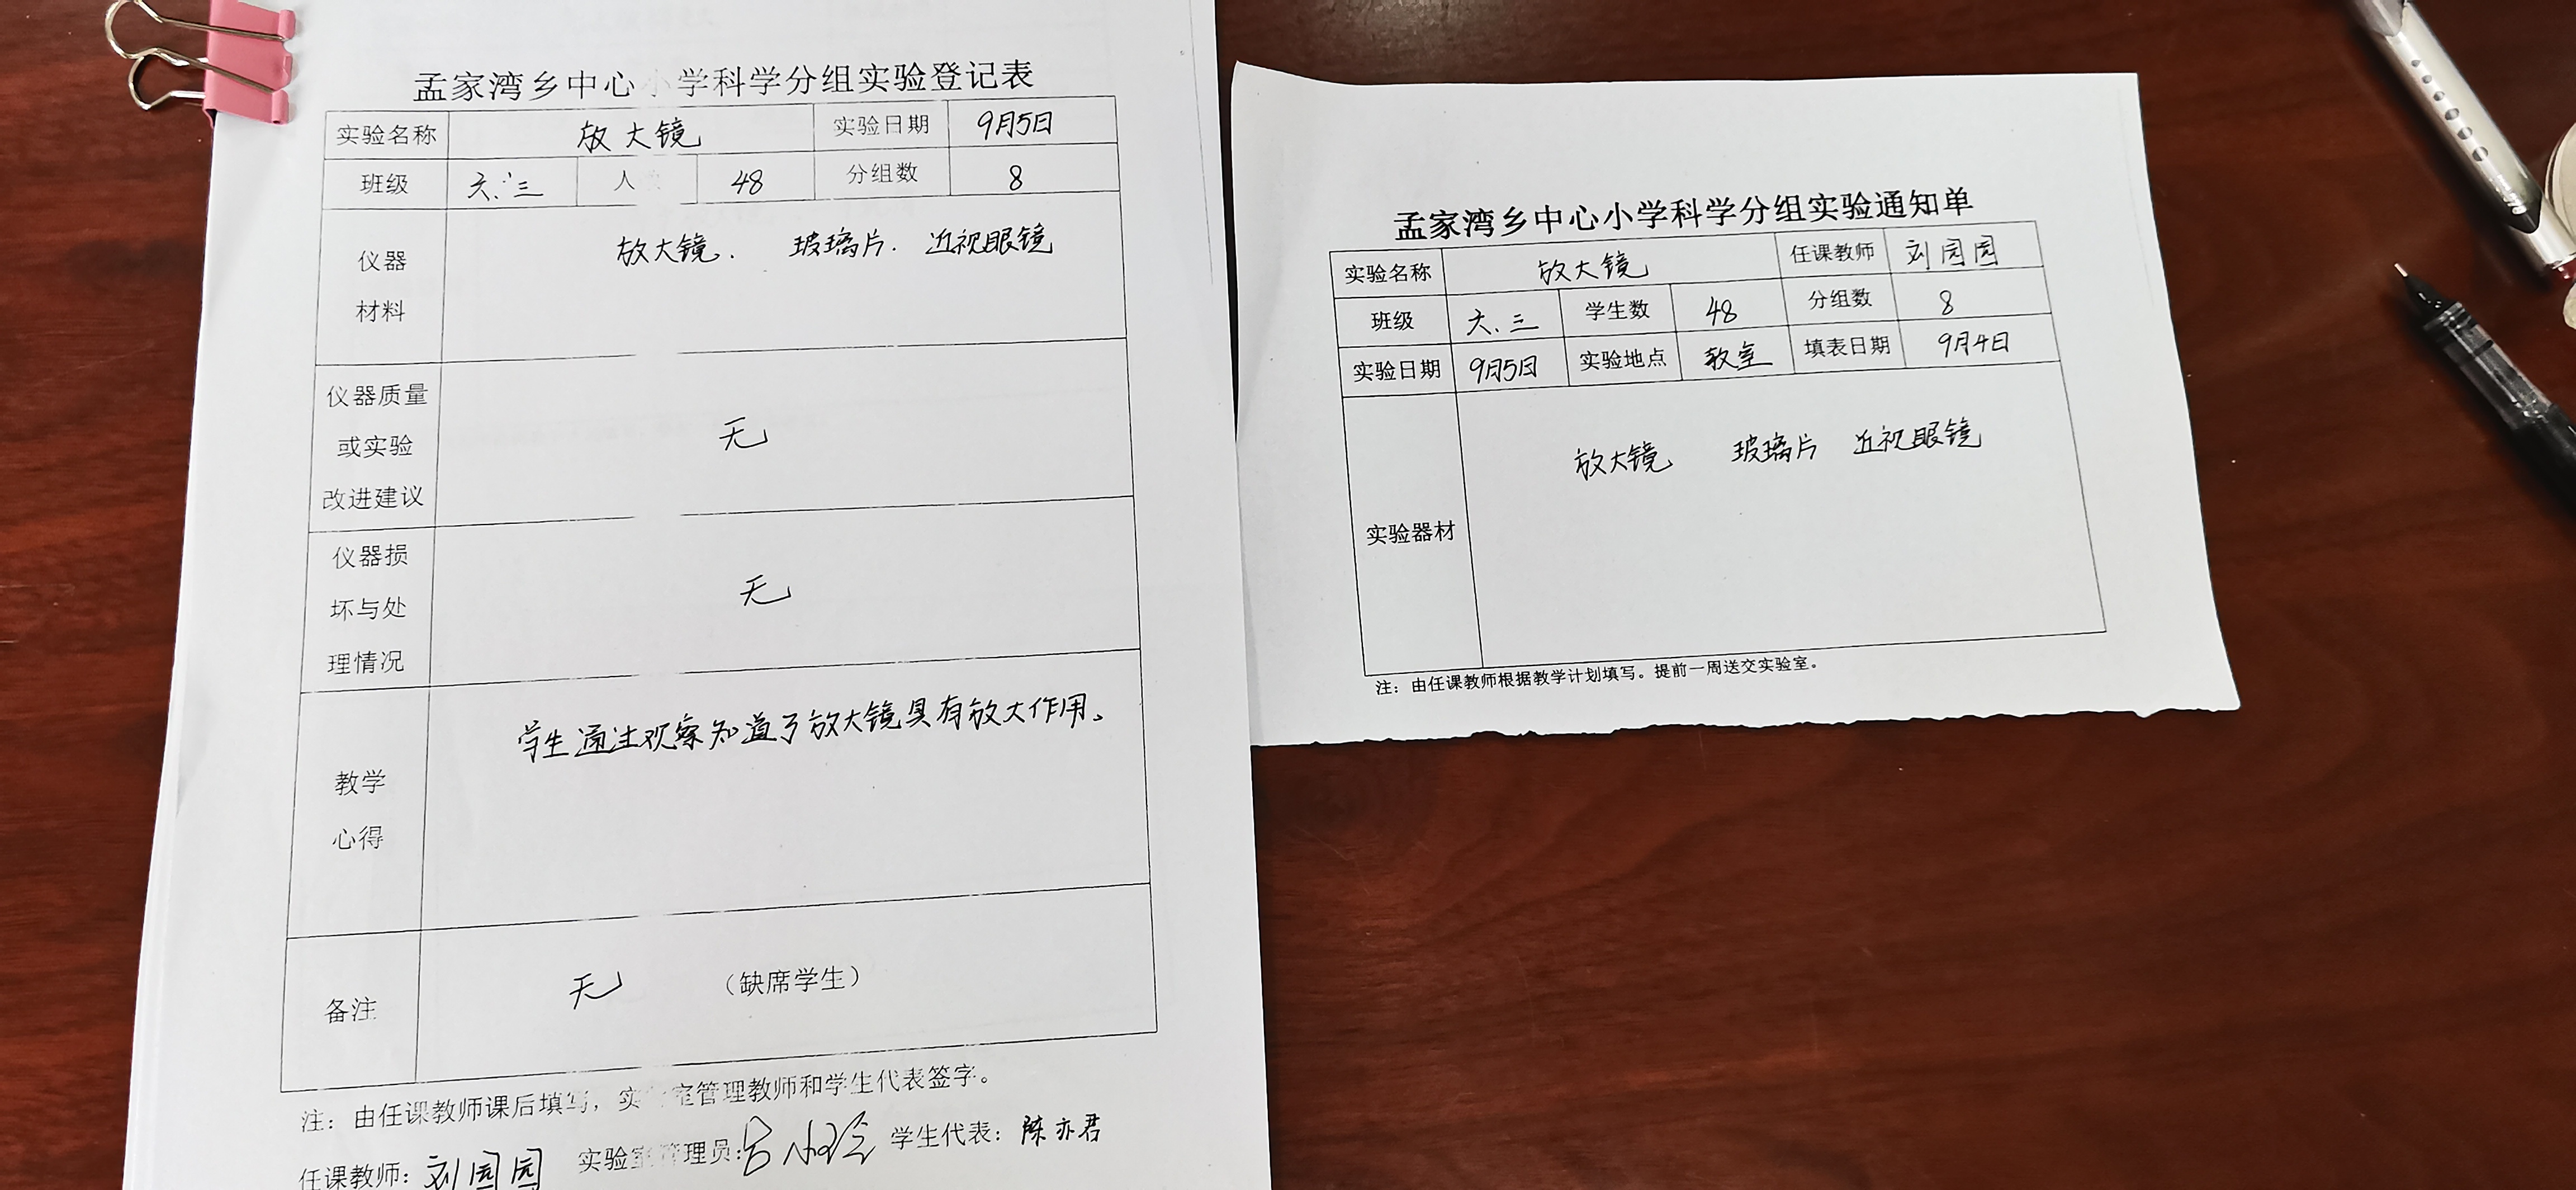 孟家湾乡中心小学科学分组实验登记表
实验名称 放大镜 实验日期 9月5日
班级 六.三 人 48 分组数 8
仪器材料 放大镜. 玻璃片. 近视眼镜
仪器质量或实验改进建议 无
仪器损坏与处理情况 无
教学心得 学生通过观察知道了放大镜具有放大作用。
备注 无 （缺席学生）
注：由任课教师课后填写，实验室管理教师和学生代表签字。
任课教师：刘园园 实验室管理员： 学生代表：陈亦君
孟家湾乡中心小学科学分组实验通知单
实验名称 放大镜 任课教师 刘园园
班级 六.三 学生数 48 分组数 8
实验日期 9月5日 实验地点 教室 填表日期 9月4日
实验器材 放大镜 玻璃片 近视眼镜
注：由任课教师根据教学计划填写。提前一周送交实验室。